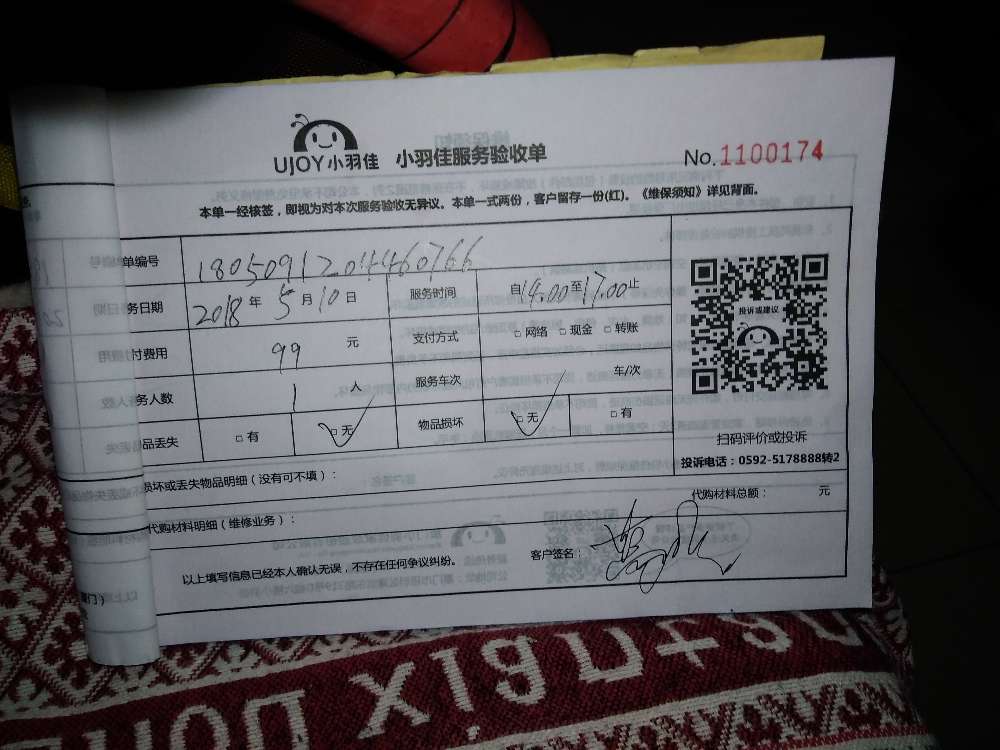 UJOY小羽佳 小羽佳服务验收单 No.1100174
本单一经核签，即视为对本次服务验收无异议。本单一式两份，客户留存一份(红)。《维保须知》详见背面。
单编号 1805091204460766
务日期 2018年5月10日 服务时间 自14.00至17.00止
付费用 99 元 支付方式 □网络 □现金 □转账
务人数 1 人 服务车次 车/次
品丢失 □有 □无 物品损坏 □无 □有
投诉或建议
扫码评价或投诉
投诉电话：0592-5178888转2
损坏或丢失物品明细（没有可不填）：
代购材料明细（维修业务）： 代购材料总额： 元
以上填写信息已经本人确认无误，不存在任何争议纠纷。 客户签名：